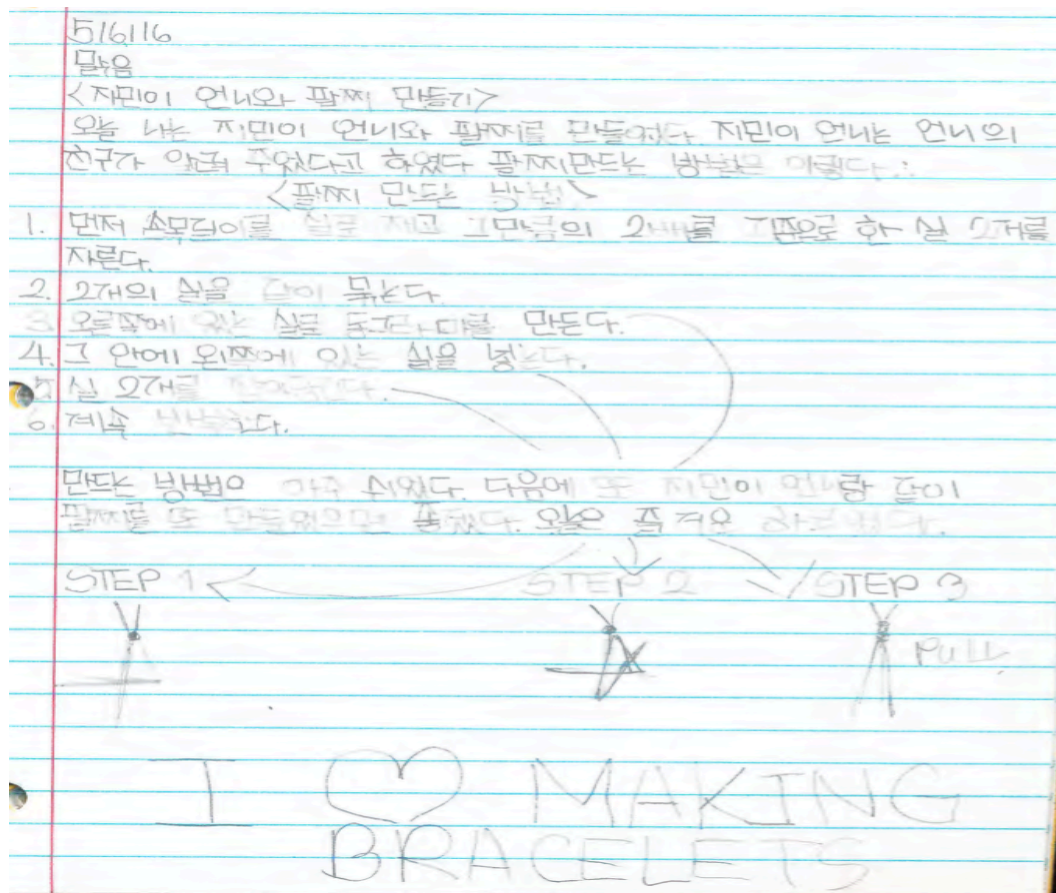 5/6/16
맑음
<지민이 언니와 팔찌 만들기>
오늘 나는 지민이 언니와 팔찌를 만들었다. 지민이 언니는 언니의
친구가 알려 주었다고 하였다 팔찌만드는 방법은 이렇다.:
<팔찌 만드는 방법>
1. 먼저 손목둘이를 실로 재고 그만큼의 2배를 기준으로 한 실 2개를
자른다.
2. 2개의 실을 같이 묶는다.
3. 오른쪽에 있는 실로 동그라미를 만든다.
4. 그 안에 왼쪽에 있는 실을 넣는다.
5. 실 2개를
6. 계속 반복한다.
만드는 방법은 아주 쉬웠다. 다음에 또 지민이 언니랑 같이
팔찌를 또 만들었으면 좋겠다. 오늘은 즐거운 하루였다.
STEP 1 STEP 2 STEP 3
PULL
I ♡ MAKING
BRACELETS